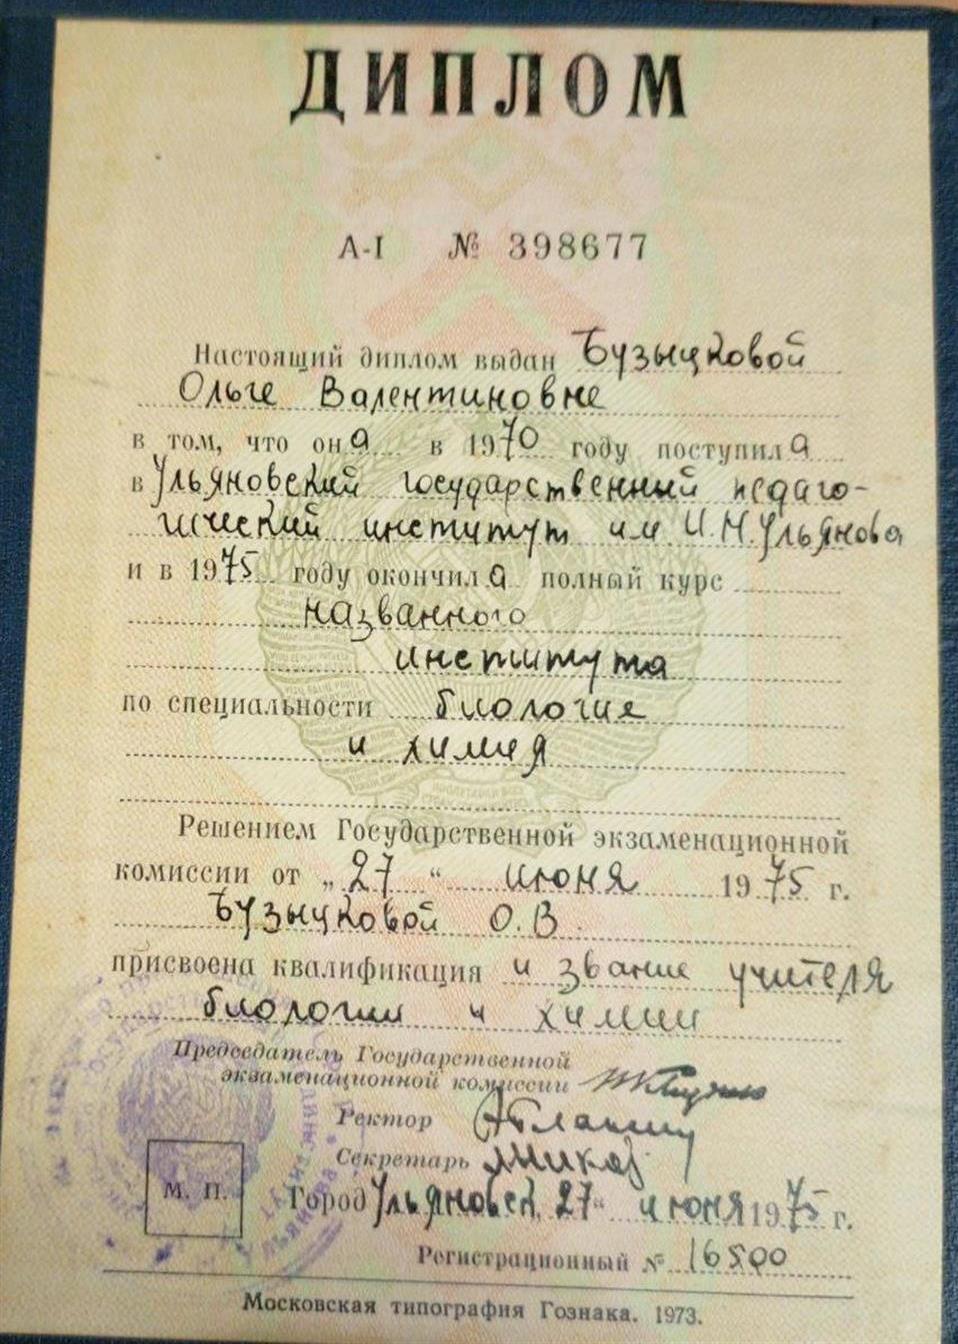 ДИПЛОМ
А-I № 398677
Настоящий диплом выдан Бузыцковой
Ольге Валентиновне
в том, что она в 1970 году поступила
в Ульяновский государственный педаго-
гический институт им И.Н.Ульянова
и в 1975 году окончила полный курс
названного
института
по специальности биология
и химия
Решением Государственной экзаменационной
комиссии от „27“ июня 1975 г.
Бузыцковой О.В.
присвоена квалификация и звание учителя
биологии и химии
Председатель Государственной
экзаменационной комиссии
Ректор
Секретарь
М. П.
Город Ульяновск, 27“ июня 1975 г.
Регистрационный № 16500
Московская типография Гознака. 1973.